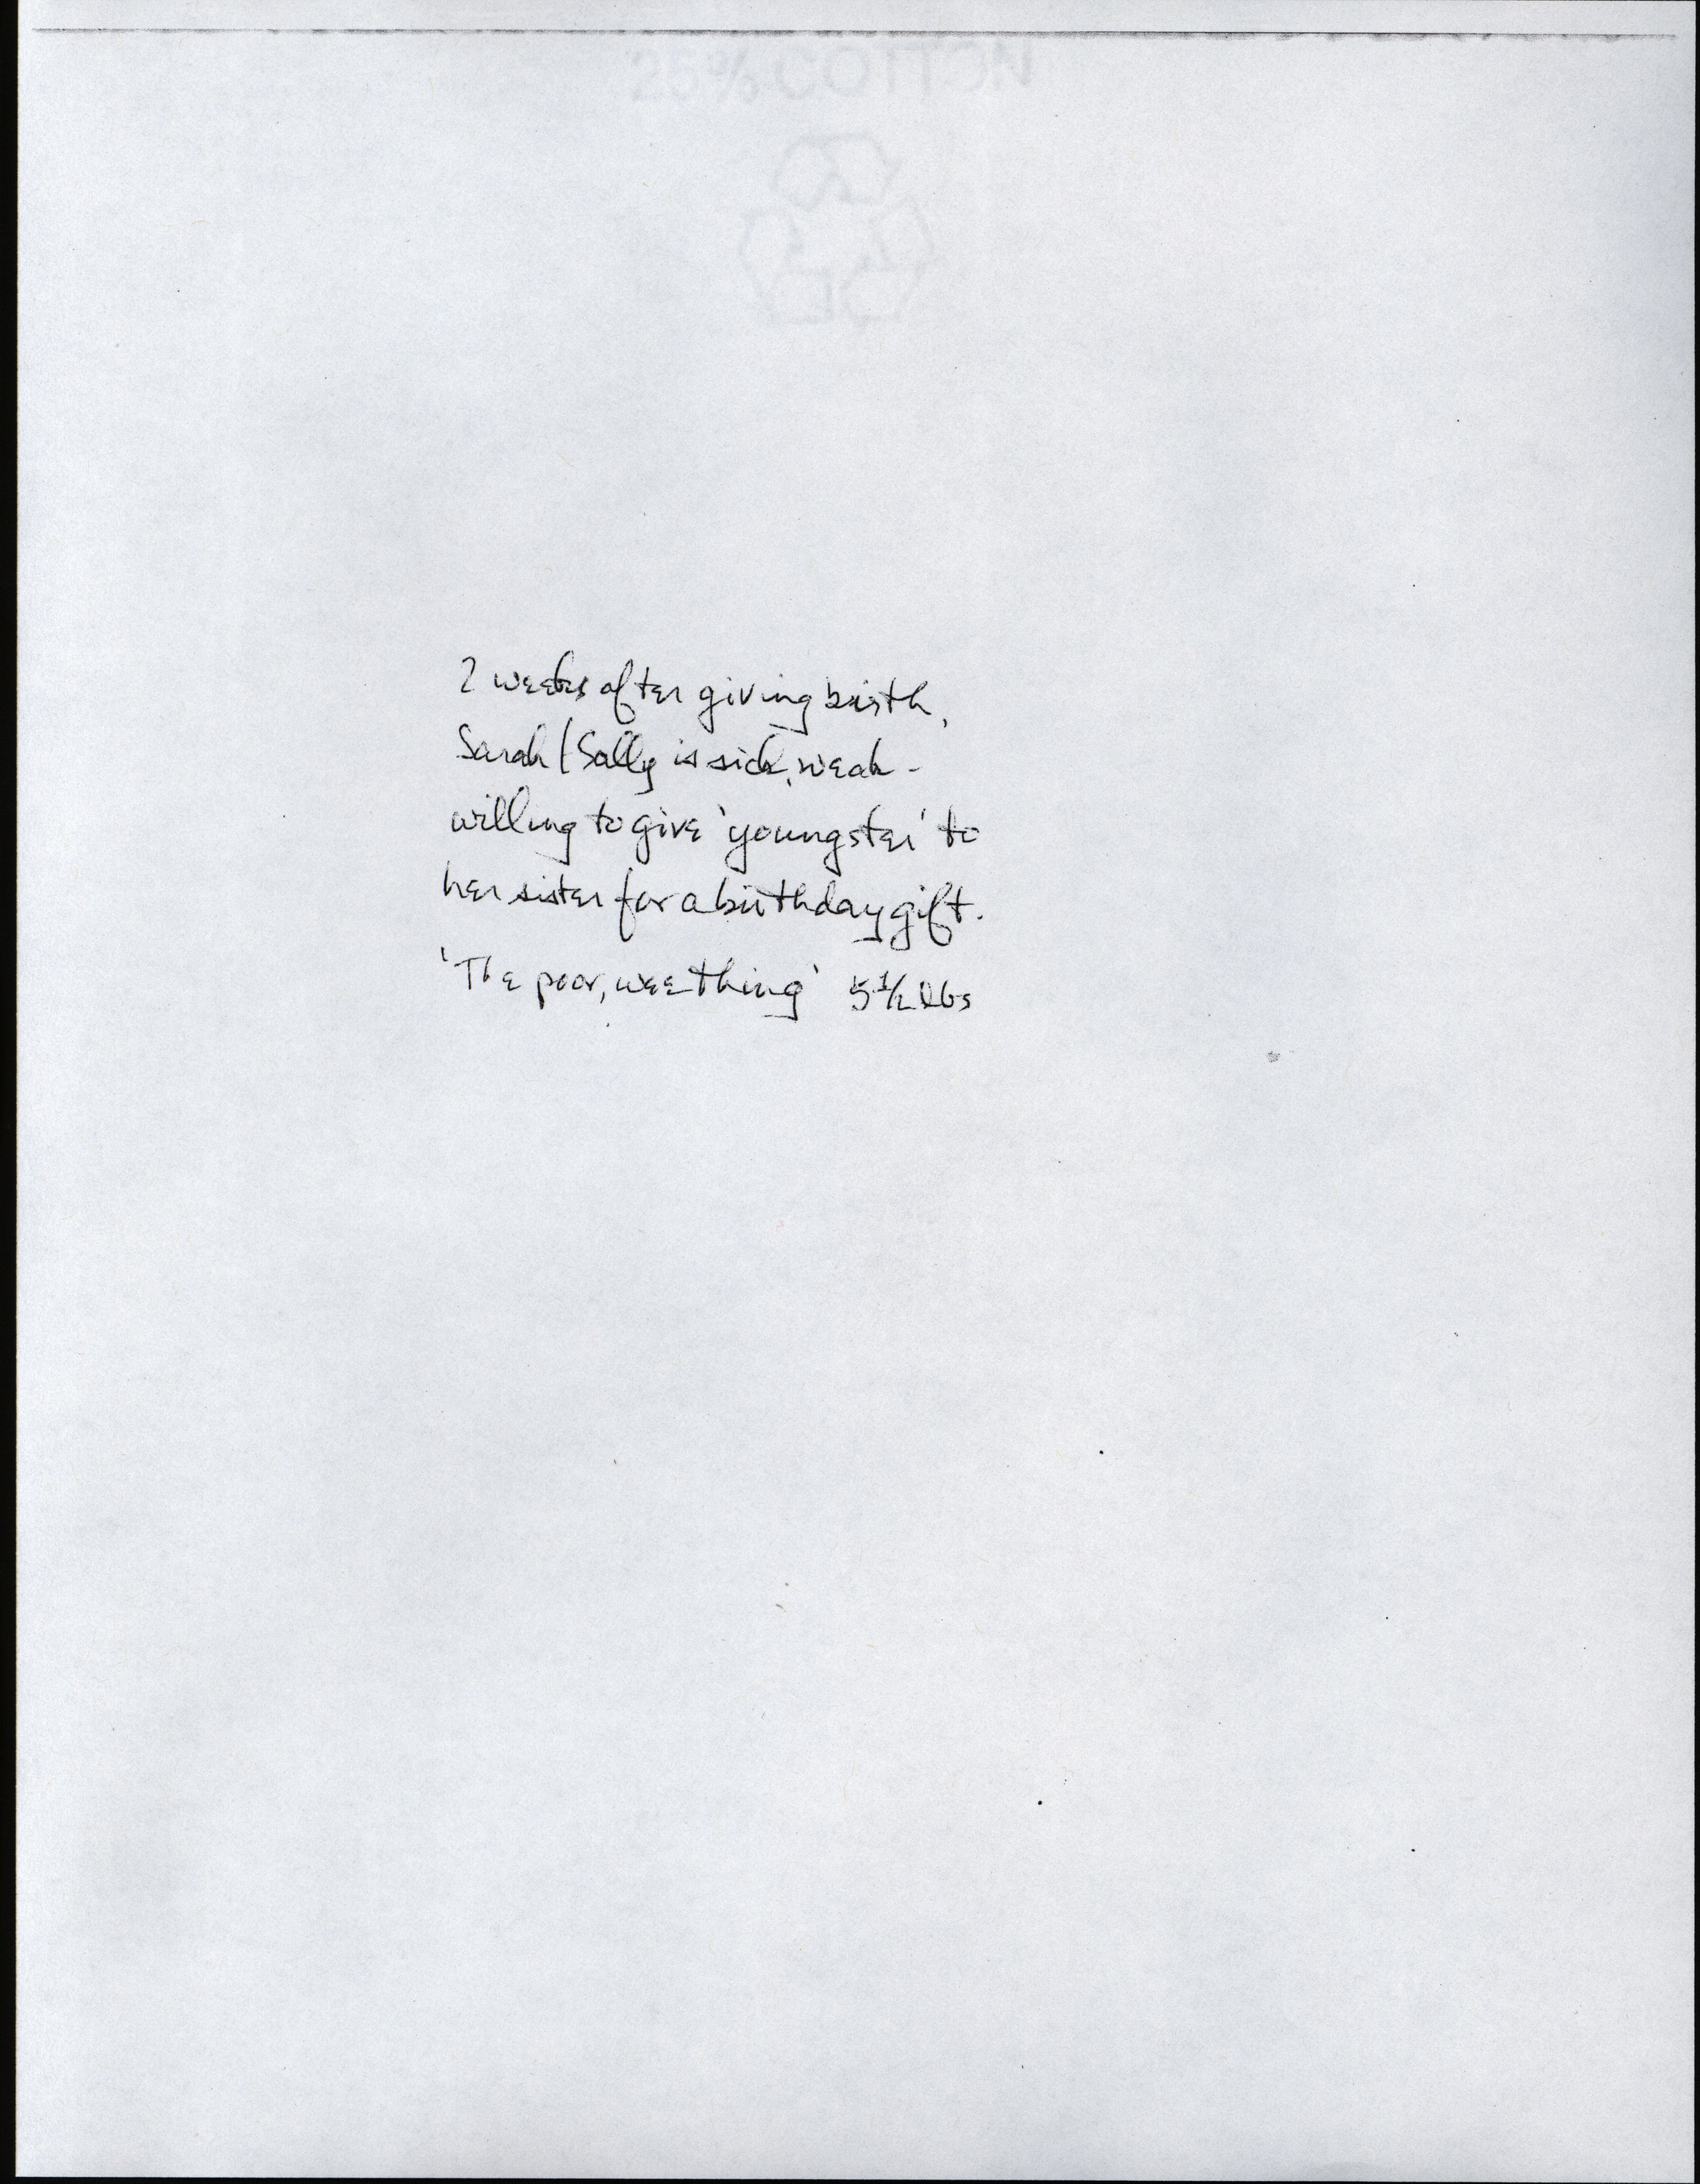 25% COTTON
2 weeks after giving birth,
Sarah / Sally is sick, weak -
willing to give 'youngster' to
her sister for a birthday gift.
'The poor, wee thing' 5 1/2 lbs